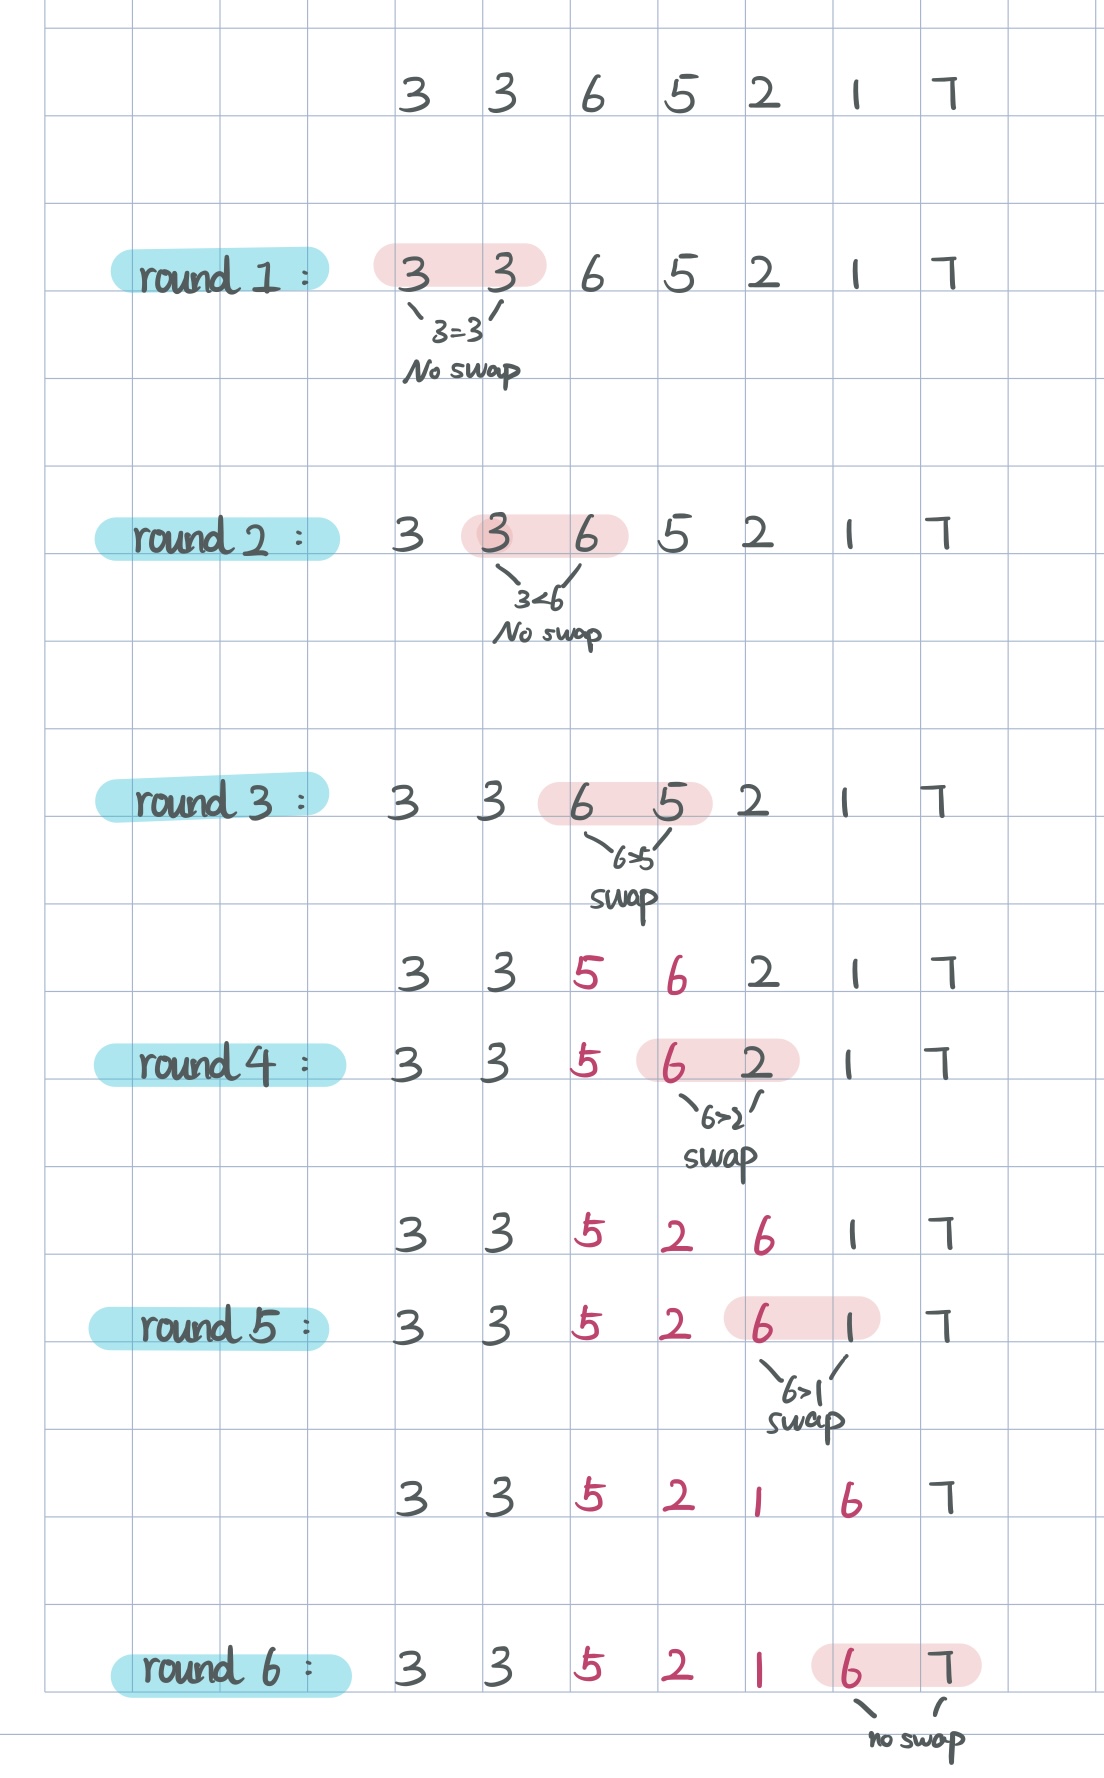 3 3 6 5 2 1 7
round 1 : 3 3 6 5 2 1 7
3=3
No swap
round 2 : 3 3 6 5 2 1 7
3<6
No swap
round 3 : 3 3 6 5 2 1 7
6>5
swap
3 3 5 6 2 1 7
round 4 : 3 3 5 6 2 1 7
6>2
swap
3 3 5 2 6 1 7
round 5 : 3 3 5 2 6 1 7
6>1
swap
3 3 5 2 1 6 7
round 6 : 3 3 5 2 1 6 7
no swap